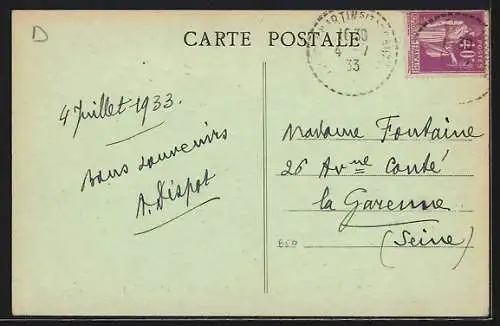 D
CARTE POSTALE
10 30
4 - 7
33
POSTES
40c
4 Juillet 1933.
Bons souvenirs
A. Dispot
Madame Fontaine
26 Avnue Conté
la Garenne
(Seine)